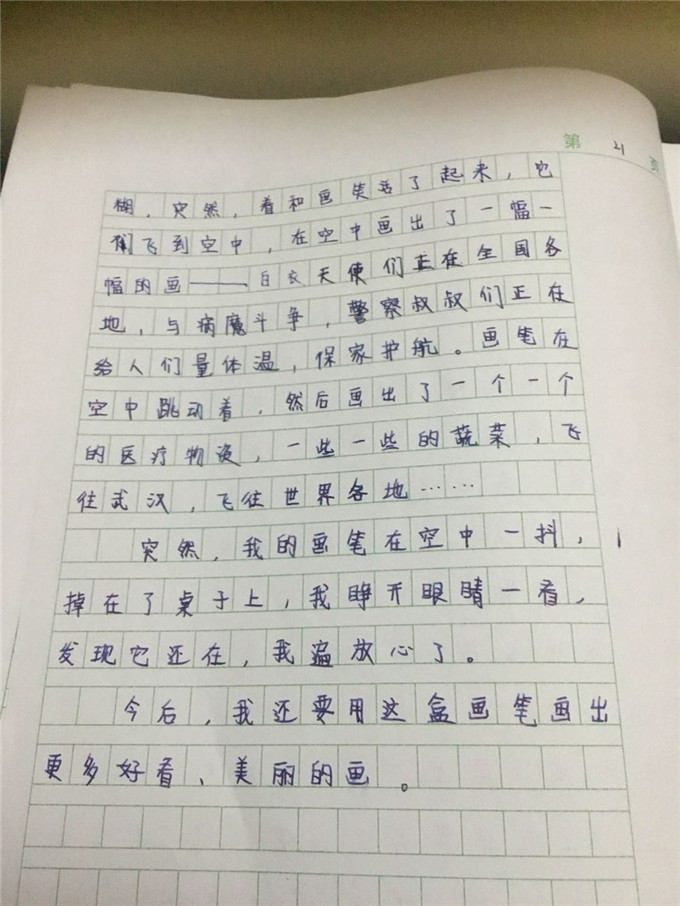 第 21 页
糊，突然，着和画笔活了起来，它
们飞到空中，在空中画出了一幅一
幅的画——白衣天使们正在全国各
地，与病魔斗争，警察叔叔们正在
给人们量体温，保家护航。画笔在
空中跳动着，然后画出了一个一个
的医疗物资，一些一些的蔬菜，飞
往武汉，飞往世界各地……
突然，我的画笔在空中一抖，
掉在了桌子上，我睁开眼睛一看，
发现它还在，我放心了。
今后，我还要用这盒画笔画出
更多好看、美丽的画。